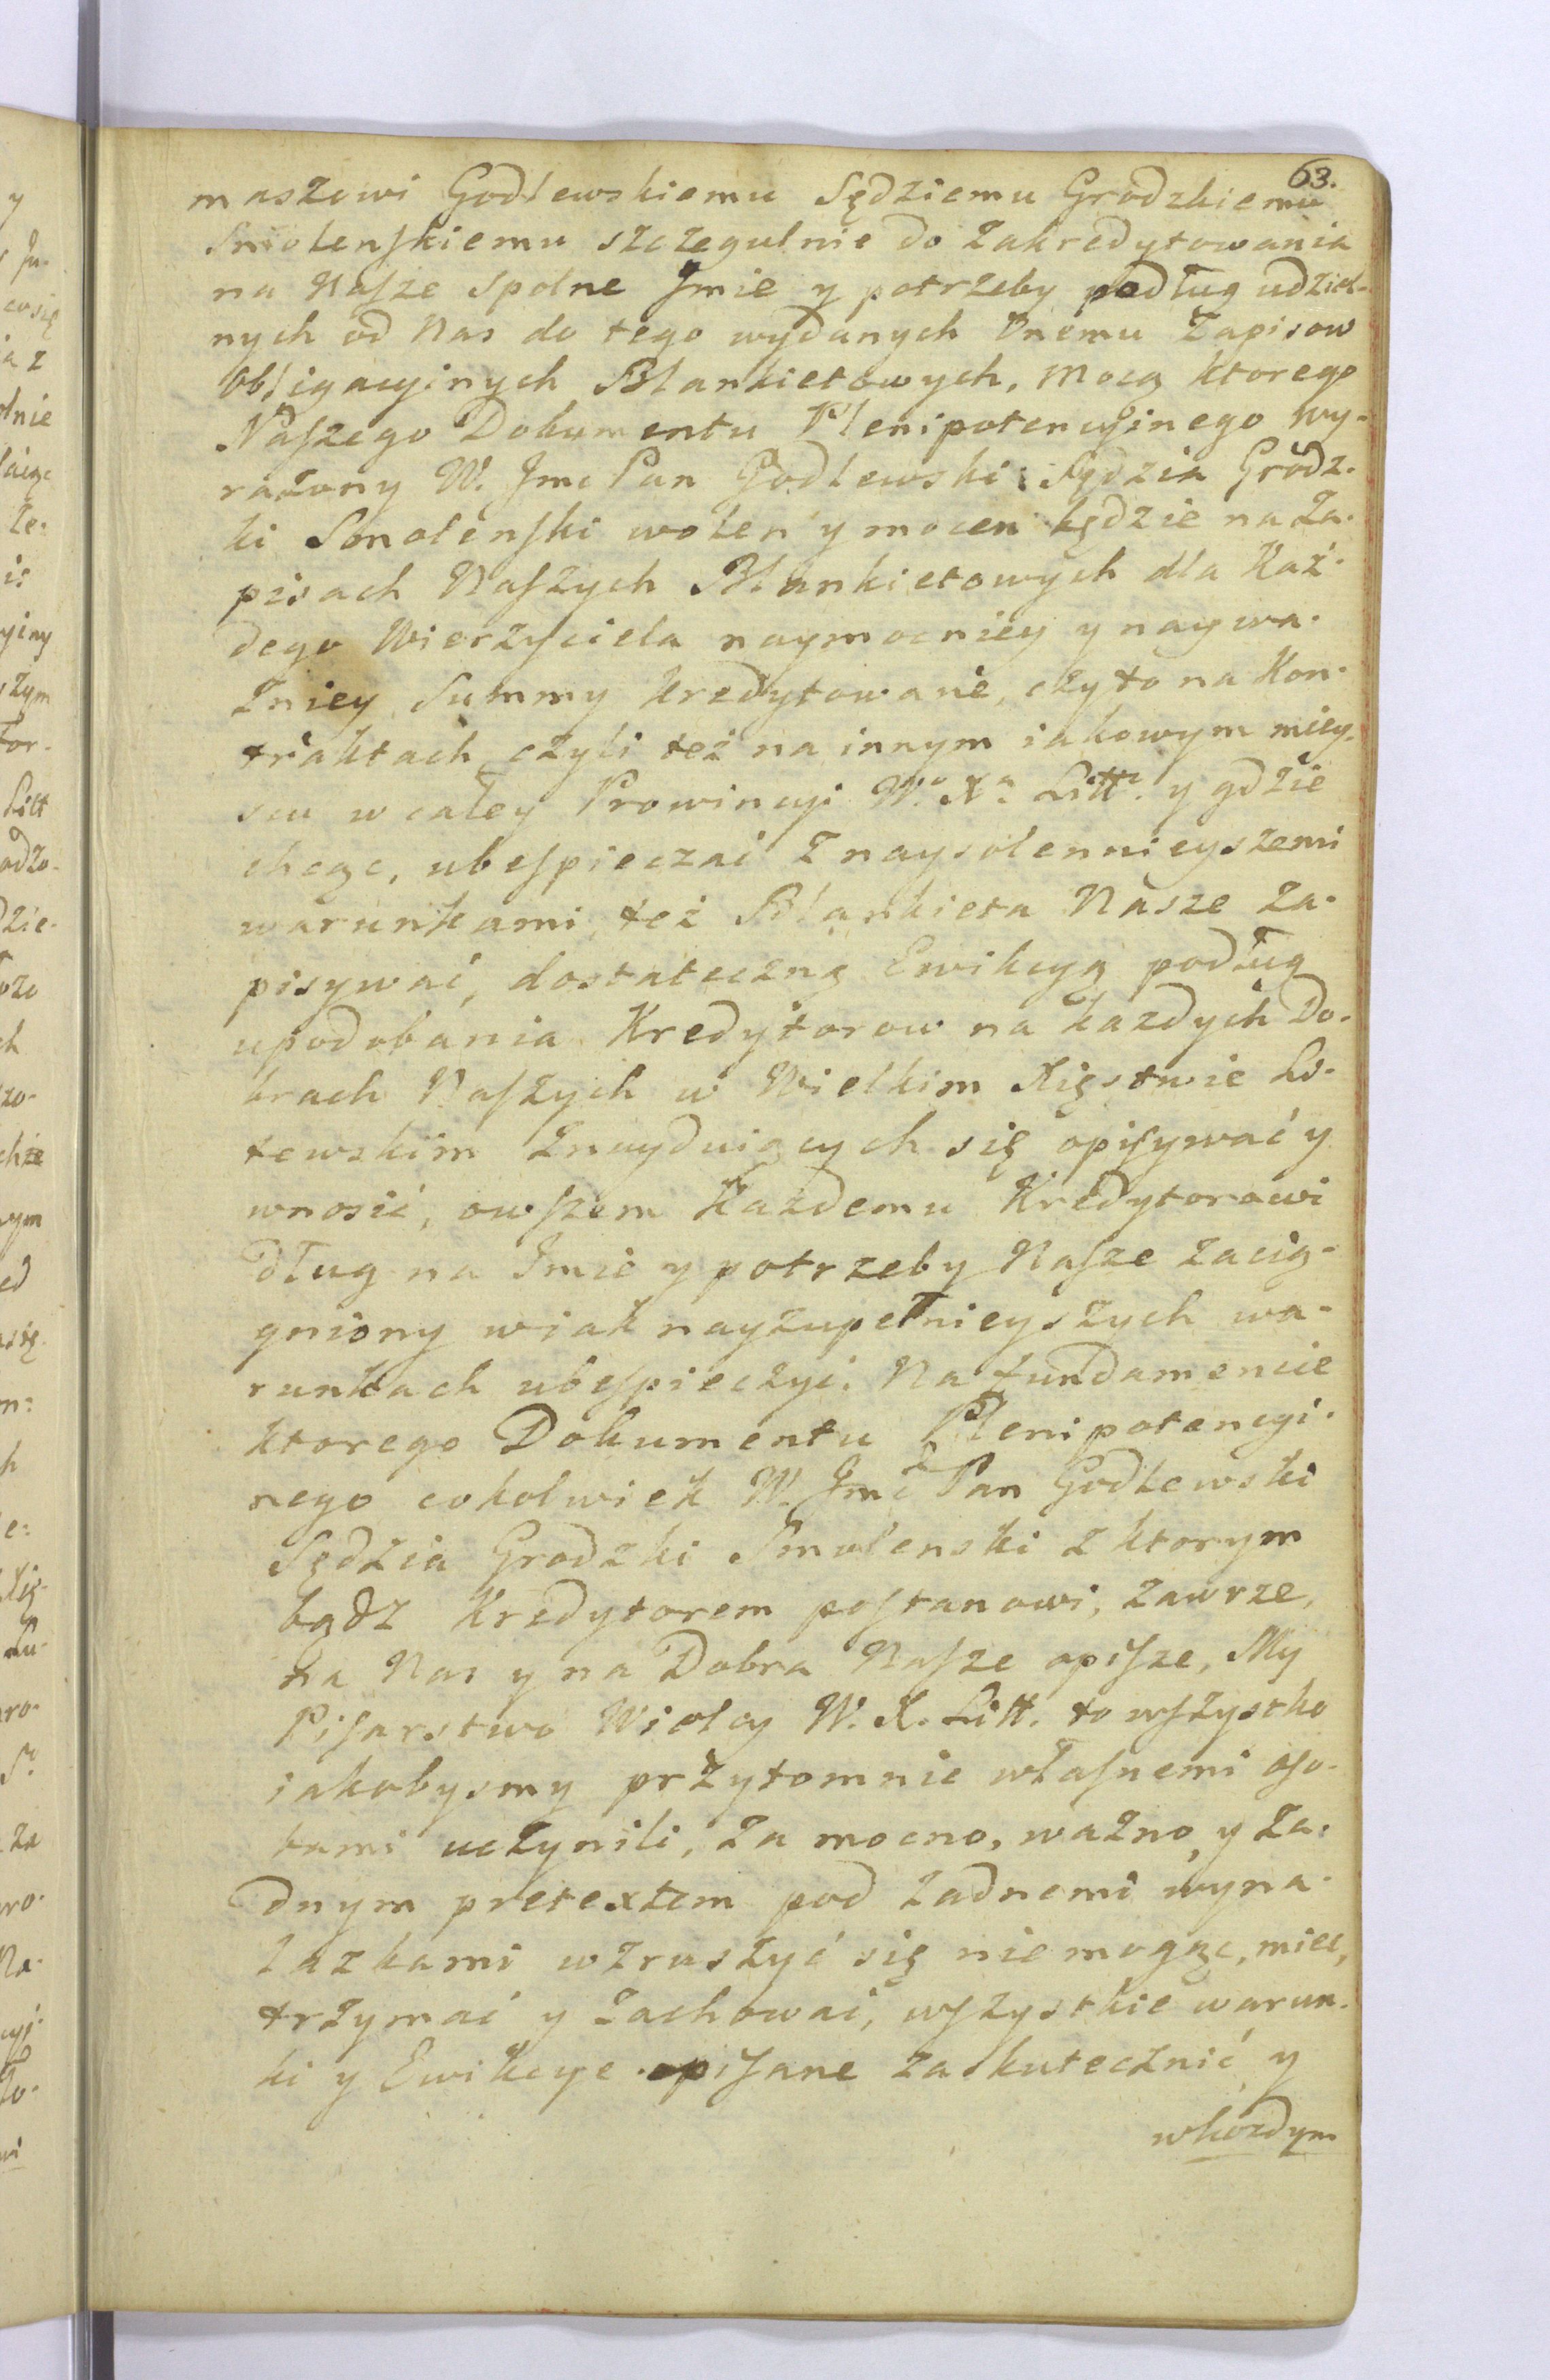 63.
maszowi Godlewskiemu Sędziemu Grodzkiemu
Smolenskiemu szczegulnie do zakredytowania
na Nasze Spolne Jmie y potrzeby podług udziel-
nych od Nas do tego wydanych Onemu Zapisow
Obligacyinych Blankietowych, Mocą ktorego
Naszego Dokumentu Plenipotencyinego wy-
rażony W. Jmc Pan Godlewski Sędzia Grodz-
ki Smolenski wolen y mocen będzie na Za-
pisach Naszych Blankietowych dla Każ-
dego Wierzyciela naymocniey y naywa-
żniey Summy kredytowane, czyto na Kon-
traktach czyli też na innym iakowym miey-
scu w całey Prowincyi W.o X.a Litt.o y gdzie
chcąc, ubespieczać Z naysolennieyszemi
warunkami, też Blankieta Nasze Za-
pisywać, dostateczną Ewikcyą podług
upodobania Kredytorow na każdych Do-
brach Naszych w Wielkim Xięstwie Li-
tewskim Znayduiących się opisywać y
wnosić, owszem Każdemu Kredytorowi
Dług na Jmie y potrzeby Nasze zacią-
gniony w iak nayzupełnieyszych wa-
runkach ubespieczyć. Na fundamencie
ktorego Dokumentu Plenipotencyi-
nego cokolwiek W. Jmc Pan Godlewski
Sędzia Grodzki Smolenski z ktorym
bądz Kredytorem postanowi, zawrze,
na Nas y na Dobra Nasze opisze, My
Pisarstwo Wielcy W. X. Litt. to wszystko
iakobysmy przytomnie własnemi oso-
bami uczynili, za mocno, ważno, y ża-
dnym pretextem pod żadnemi wyna-
lazkami wzruszyć się niemogąc, miec,
trzymać y zachować, wszystkie warun-
ki y Ewikcye opisane zaskutecznić y
wkażdym